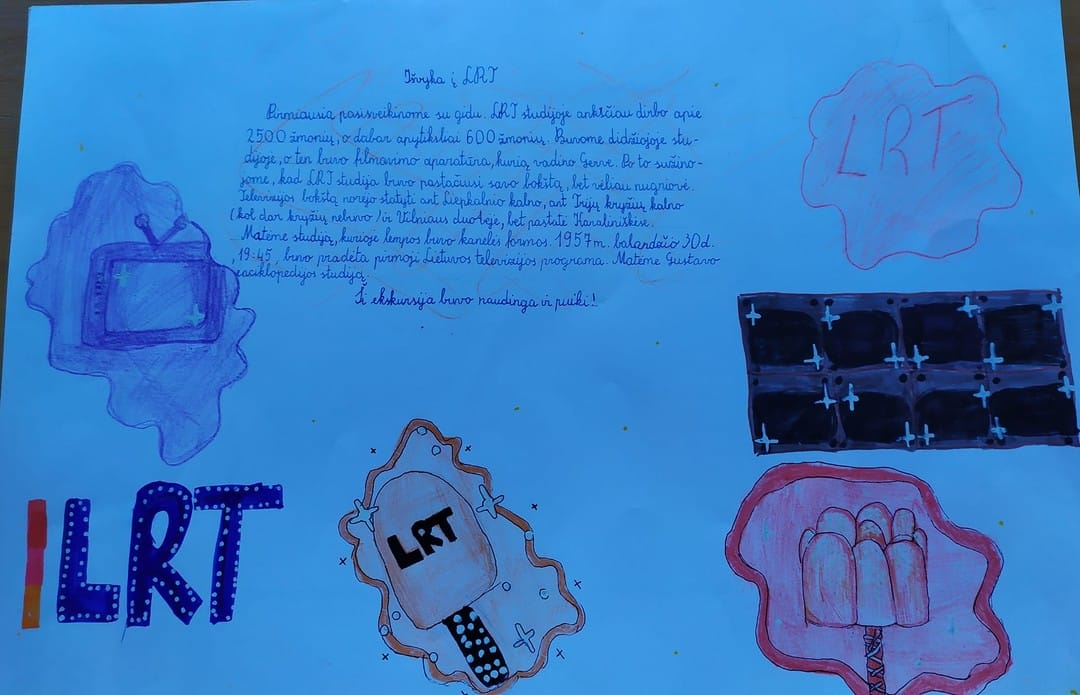 Išvyka į LRT
Pirmiausia pasisveikinome su gidu. LRT studijoje anksčiau dirbo apie
2500 žmonių, o dabar apytiksliai 600 žmonių. Buvome didžiojoje stu-
dijoje, o ten buvo filmavimo aparatūra, kurią vadino Gerve. Po to sužino-
jome, kad LRT studija buvo pastačiusi savo bokštą, bet vėliau nugriovė.
Televizijos bokštą norėjo statyti ant Liepkalnio kalno, ant Trijų kryžių kalno
(kol dar kryžių nebuvo) ir Vilniaus duobėje, bet pastatė Karoliniškėse.
Matėme studiją, kurioje lempos buvo kanelės formos. 1957m. balandžio 30d.
, 19:45, buvo pradėta pirmoji Lietuvos televizijos programa. Matėme Gustavo
enciklopedijos studiją.
Ši ekskursija buvo naudinga ir puiki!
LRT
LRT
LRT